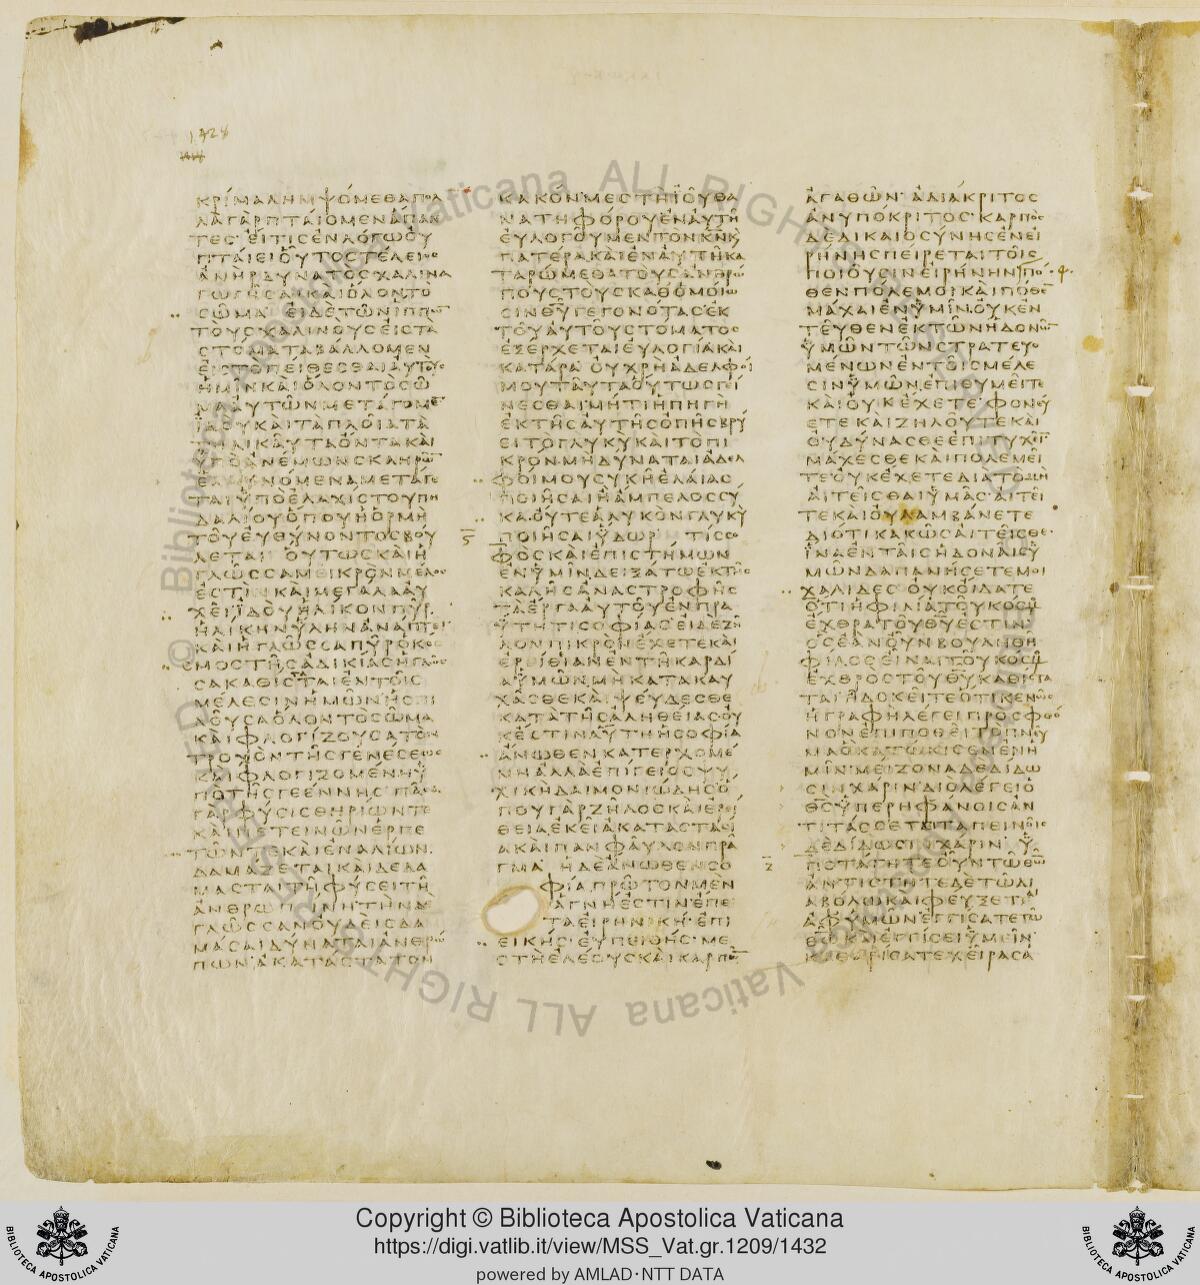 1428
ΚΡΙΜΑΛΗΜΨΟΜΕΘΑΠΟΛ
ΛΑΓΑΡΠΤΑΙΟΜΕΝΑΠΑΝ
ΤΕΣ ΕΙΤΙΣΕΝΛΟΓΩΟΥ
ΠΤΑΙΕΙΟΥΤΟΣΤΕΛΕΙΟΣ
ΑΝΗΡΔΥΝΑΤΟΣΧΑΛΙΝΑ
ΓΩΓΗΣΑΙΚΑΙΟΛΟΝΤΟ
ΣΩΜΑ ΕΙΔΕΤΩΝΙΠΠΩ̅
ΤΟΥΣΧΑΛΙΝΟΥΣΕΙΣΤΑ
ΣΤΟΜΑΤΑΒΑΛΛΟΜΕΝ
ΕΙΣΤΟΠΕΙΘΕΣΘΑΙΑΥΤΟΥΣ
ΗΜΙΝΚΑΙΟΛΟΝΤΟΣΩ
ΜΑΑΥΤΩΝΜΕΤΑΓΟΜΕ̅
ΙΔΟΥΚΑΙΤΑΠΛΟΙΑΤΑ
ΤΗΛΙΚΑΥΤΑΟΝΤΑΚΑΙ
ΥΠΟΑΝΕΜΩΝΣΚΛΗΡΩ̅
ΕΛΑΥΝΟΜΕΝΑΜΕΤΑΓΕ
ΤΑΙΥΠΟΕΛΑΧΙΣΤΟΥΠΗ
ΔΑΛΙΟΥΟΠΟΥΗΟΡΜΗ
ΤΟΥΕΥΘΥΝΟΝΤΟΣΒΟΥ
ΛΕΤΑΙ ΟΥΤΩΣΚΑΙΗ
ΓΛΩΣΣΑΜΕΙΚΡΟΝΜΕΛΟΣ
ΕΣΤΙΝΚΑΙΜΕΓΑΛΑΑΥ
ΧΕΙΙΔΟΥΗΛΙΚΟΝΠΥΡ
ΗΛΙΚΗΝΥΛΗΝΑΝΑΠΤΕΙ
ΚΑΙΗΓΛΩΣΣΑΠΥΡΟΚΟΣ
ΜΟΣΤΗΣΑΔΙΚΙΑΣΗΓΛΩΣ
ΣΑΚΑΘΙΣΤΑΙΕΝΤΟΙΣ
ΜΕΛΕΣΙΝΗΜΩΝΗΣΠΙ
ΛΟΥΣΑΟΛΟΝΤΟΣΩΜΑ
ΚΑΙΦΛΟΓΙΖΟΥΣΑΤΟΝ
ΤΡΟΧΟΝΤΗΣΓΕΝΕΣΕΩΣ
ΚΑΙΦΛΟΓΙΖΟΜΕΝΗΫ
ΠΟΤΗΣΓΕΕΝΝΗΣ ΠΑΣΑ
ΓΑΡΦΥΣΙΣΘΗΡΙΩΝΤΕ
ΚΑΙΠΕΤΕΙΝΩΝΕΡΠΕ
ΤΩΝΤΕΚΑΙΕΝΑΛΙΩΝ
ΔΑΜΑΖΕΤΑΙΚΑΙΔΕΔΑ
ΜΑΣΤΑΙΤΗΦΥΣΕΙΤΗ
ΑΝΘΡΩΠΙΝΗΤΗΝΔΕ
ΓΛΩΣΣΑΝΟΥΔΕΙΣΔΑ
ΜΑΣΑΙΔΥΝΑΤΑΙΑΝΘΡΩ
ΠΩΝ ΑΚΑΤΑΣΤΑΤΟΝ
ΚΑΚΟΝ ΜΕΣΤΗΪΟΥΘΑ
ΝΑΤΗΦΟΡΟΥΕΝΑΥΤΗ
ΕΥΛΟΓΟΥΜΕΝΤΟΝΚ̅Ν̅Κ
ΠΑΤΕΡΑΚΑΙΕΝΑΥΤΗΚΑ
ΤΑΡΩΜΕΘΑΤΟΥΣΑΝΘΡΩ
ΠΟΥΣΤΟΥΣΚΑΘΟΜΟΙΩ
ΣΙΝΘ̅Υ̅ΓΕΓΟΝΟΤΑΣΕΚ
ΤΟΥΑΥΤΟΥΣΤΟΜΑΤΟΣ
ΕΞΕΡΧΕΤΑΙΕΥΛΟΓΙΑΚΑΙ
ΚΑΤΑΡΑ ΟΥΧΡΗΑΔΕΛΦΟΙ
ΜΟΥΤΑΥΤΑΟΥΤΩΣΓΕΙ
ΝΕΣΘΑΙΜΗΤΙΗΠΗΓΗ
ΕΚΤΗΣΑΥΤΗΣΟΠΗΣΒΡΥ
ΕΙΤΟΓΛΥΚΥΚΑΙΤΟΠΙ
ΚΡΟΝ ΜΗΔΥΝΑΤΑΙΑΔΕΛ
ΦΟΙΜΟΥΣΥΚΗΕΛΑΙΑΣ
ΠΟΙΗΣΑΙΗΑΜΠΕΛΟΣΣΥ
ΚΑ ΟΥΤΕΑΛΥΚΟΝΓΛΥΚΥ
ΠΟΙΗΣΑΙΫΔΩΡ ΤΙΣΣΟ
ΦΟΣΚΑΙΕΠΙΣΤΗΜΩΝ
ΕΝΫΜΙΝΔΕΙΞΑΤΩΕΚΤΗΣ
ΚΑΛΗΣΑΝΑΣΤΡΟΦΗΣ
ΤΑΕΡΓΑΑΥΤΟΥΕΝΠΡΑ
ΫΤΗΤΙΣΟΦΙΑΣΕΙΔΕΖΗ
ΛΟΝΠΙΚΡΟΝΕΧΕΤΕΚΑΙ
ΕΡΙΘΙΑΝΕΝΤΗΚΑΡΔΙ
ΑΫΜΩΝΜΗΚΑΤΑΚΑΥ
ΧΑΣΘΕΚΑΙΨΕΥΔΕΣΘΕ
ΚΑΤΑΤΗΣΑΛΗΘΕΙΑΣΟΥ
ΚΕΣΤΙΝΑΥΤΗΗΣΟΦΙΑ
ΑΝΩΘΕΝΚΑΤΕΡΧΟΜΕ
ΝΗΑΛΛΑΕΠΙΓΕΙΟΣΨΥ
ΧΙΚΗΔΑΙΜΟΝΙΩΔΗΣΟ
ΠΟΥΓΑΡΖΗΛΟΣΚΑΙΕΡΙ
ΘΕΙΑΕΚΕΙΑΚΑΤΑΣΤΑΣΙ
ΑΚΑΙΠΑΝΦΑΥΛΟΝΠΡΑ
ΓΜΑ ΗΔΕΑΝΩΘΕΝΣΟ
ΦΙΑΠΡΩΤΟΝΜΕΝ
ΑΓΝΗΕΣΤΙΝΕΠΕ
ΤΑΕΙΡΗΝΙΚΗ ΕΠΙ
ΕΙΚΗΣ ΕΥΠΕΙΘΗΣ ΜΕ
ΣΤΗΕΛΕΟΥΣΚΑΙΚΑΡΠΩ̅
ΑΓΑΘΩΝ ΑΔΙΑΚΡΙΤΟΣ
ΑΝΥΠΟΚΡΙΤΟΣ ΚΑΡΠΟΣ
ΔΕΔΙΚΑΙΟΣΥΝΗΣΕΝΕΙ
ΡΗΝΗΣΠΕΙΡΕΤΑΙΤΟΙΣ
ΠΟΙΟΥΣΙΝΕΙΡΗΝΗΝ ΠΟ
ΘΕΝΠΟΛΕΜΟΙΚΑΙΠΟΘΕ̅
ΜΑΧΑΙΕΝΫΜΙΝΟΥΚΕΝ
ΤΕΥΘΕΝΕΚΤΩΝΗΔΟΝΩ̅
ΫΜΩΝΤΩΝΣΤΡΑΤΕΥΟ
ΜΕΝΩΝΕΝΤΟΙΣΜΕΛΕ
ΣΙΝΫΜΩΝΕΠΙΘΥΜΕΙΤΕ
ΚΑΙΟΥΚΕΧΕΤΕ ΦΟΝΕΥ
ΕΤΕΚΑΙΖΗΛΟΥΤΕΚΑΙ
ΟΥΔΥΝΑΣΘΕΕΠΙΤΥΧΕΙ̅
ΜΑΧΕΣΘΕΚΑΙΠΟΛΕΜΕΙ
ΤΕΟΥΚΕΧΕΤΕΔΙΑΤΟΜΗ
ΑΙΤΕΙΣΘΑΙΫΜΑΣ ΑΙΤΕΙ
ΤΕΚΑΙΟΥΛΑΜΒΑΝΕΤΕ
ΔΙΟΤΙΚΑΚΩΣΑΙΤΕΙΣΘΕ
ΙΝΑΕΝΤΑΙΣΗΔΟΝΑΙΣΫ
ΜΩΝΔΑΠΑΝΗΣΕΤΕΜΟΙ
ΧΑΛΙΔΕΣ ΟΥΚΟΙΔΑΤΕ
ΟΤΙΗΦΙΛΙΑΤΟΥΚΟΣΜΟΥ
ΕΧΘΡΑΤΟΥΘ̅Υ̅ΕΣΤΙΝ
ΟΣΕΑΝΟΥΝΒΟΥΛΗΘΗ
ΦΙΛΟΣΕΙΝΑΙΤΟΥΚΟΣΜΟΥ
ΕΧΘΡΟΣΤΟΥΘ̅Υ̅ΚΑΘΙΣΤΑ
ΤΑΙ ΗΔΟΚΕΙΤΕΟΤΙΚΕΝΩΣ
ΗΓΡΑΦΗΛΕΓΕΙΠΡΟΣΦΘΟ
ΝΟΝΕΠΙΠΟΘΕΙΤΟΠΝΕΥ
ΜΑΟΚΑΤΩΚΙΣΕΝΕΝΗ
ΜΙΝ ΜΕΙΖΟΝΑΔΕΔΙΔΩ
ΣΙΝΧΑΡΙΝΔΙΟΛΕΓΕΙΟ
Θ̅Σ̅ΫΠΕΡΗΦΑΝΟΙΣΑΝ
ΤΙΤΑΣΣΕΤΑΙΤΑΠΕΙΝΟΙΣ
ΔΕΔΙΔΩΣΙΝΧΑΡΙΝ Ϋ
ΠΟΤΑΓΗΤΕΟΥΝΤΩΘ̅Ω̅
ΑΝΤΙΣΤΗΤΕΔΕΤΩΔΙ
ΑΒΟΛΩΚΑΙΦΕΥΞΕΤΑΙ
ΑΦΫΜΩΝΕΓΓΙΣΑΤΕΤΩ
Θ̅Ω̅ΚΑΙΕΓΓΙΣΕΙΫΜΕΙΝ
ΚΑΘΑΡΙΣΑΤΕΧΕΙΡΑΣΑ
Copyright © Biblioteca Apostolica Vaticana
https://digi.vatlib.it/view/MSS_Vat.gr.1209/1432
powered by AMLAD·NTT DATA
BIBLIOTECA APOSTOLICA VATICANA
BIBLIOTECA APOSTOLICA VATICANA